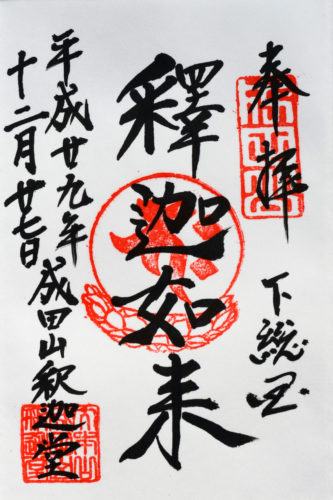 奉拝
下総国
釋迦如来
平成廿九年
十二月廿七日
成田山釈迦堂